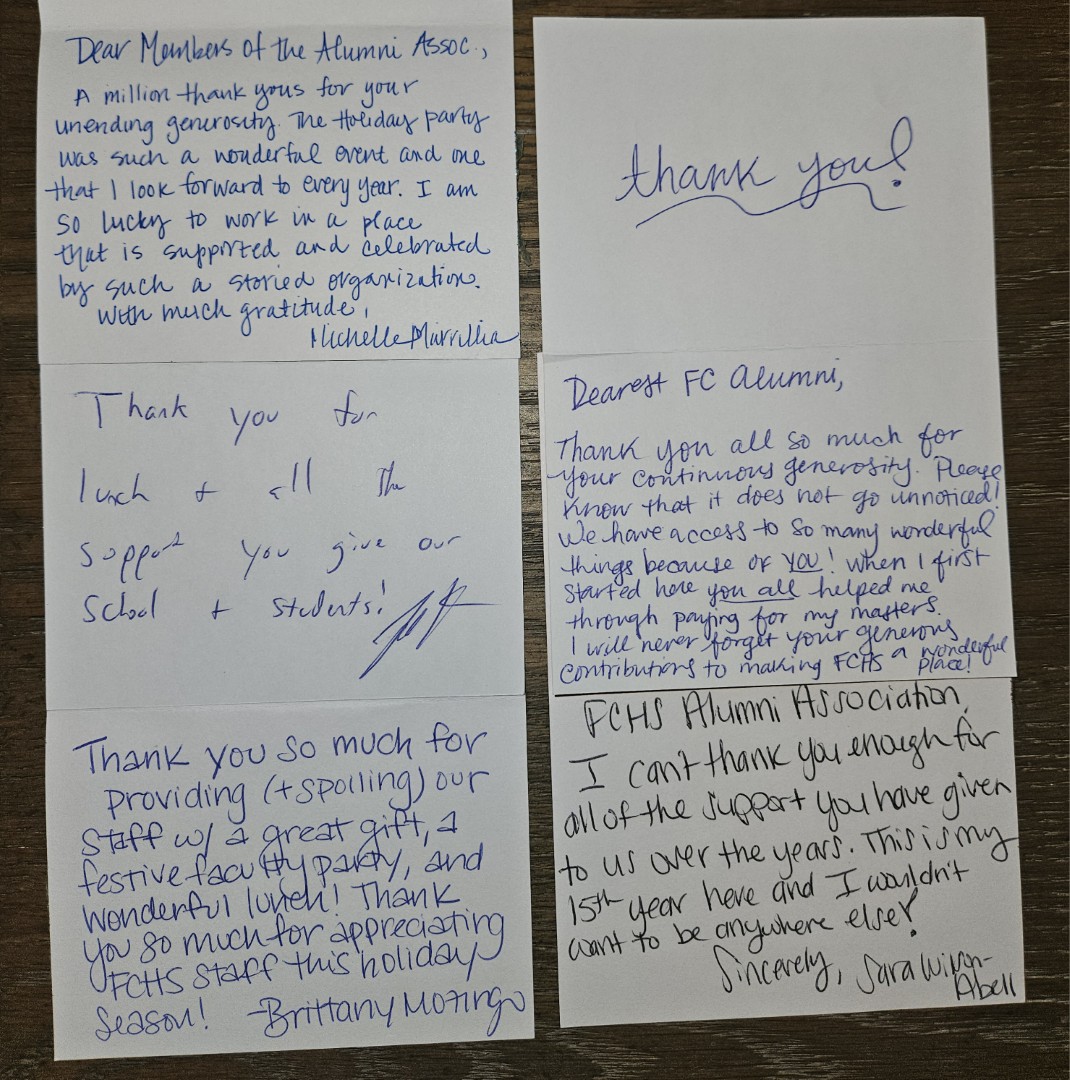 Dear Members of the Alumni Assoc.,
A million thank yous for your
unending generosity. The Holiday party
was such a wonderful event and one
that I look forward to every year. I am
so lucky to work in a place
that is supported and celebrated
by such a storied organization.
With much gratitude,
Michelle
thank you!
Thank you for
lunch + all the
support you give our
School + students!
Dearest FC Alumni,
Thank you all so much for
your continuous generosity. Please
know that it does not go unnoticed!
We have access to so many wonderful
things because of YOU! When I first
started here you all helped me
through paying for my masters.
I will never forget your generous
contributions to making FCHS a wonderful
place!
Thank you so much for
providing (+ spoiling) our
staff w/ a great gift, a
festive faculty party, and
wonderful lunch! Thank
you so much for appreciating
FCHS staff this holiday
season! -Brittany Mozingo
FCHS Alumni Association,
I can't thank you enough for
all of the support you have given
to us over the years. This is my
15th year here and I wouldn't
want to be anywhere else!
Sincerely, Sara Wilson-
Abell